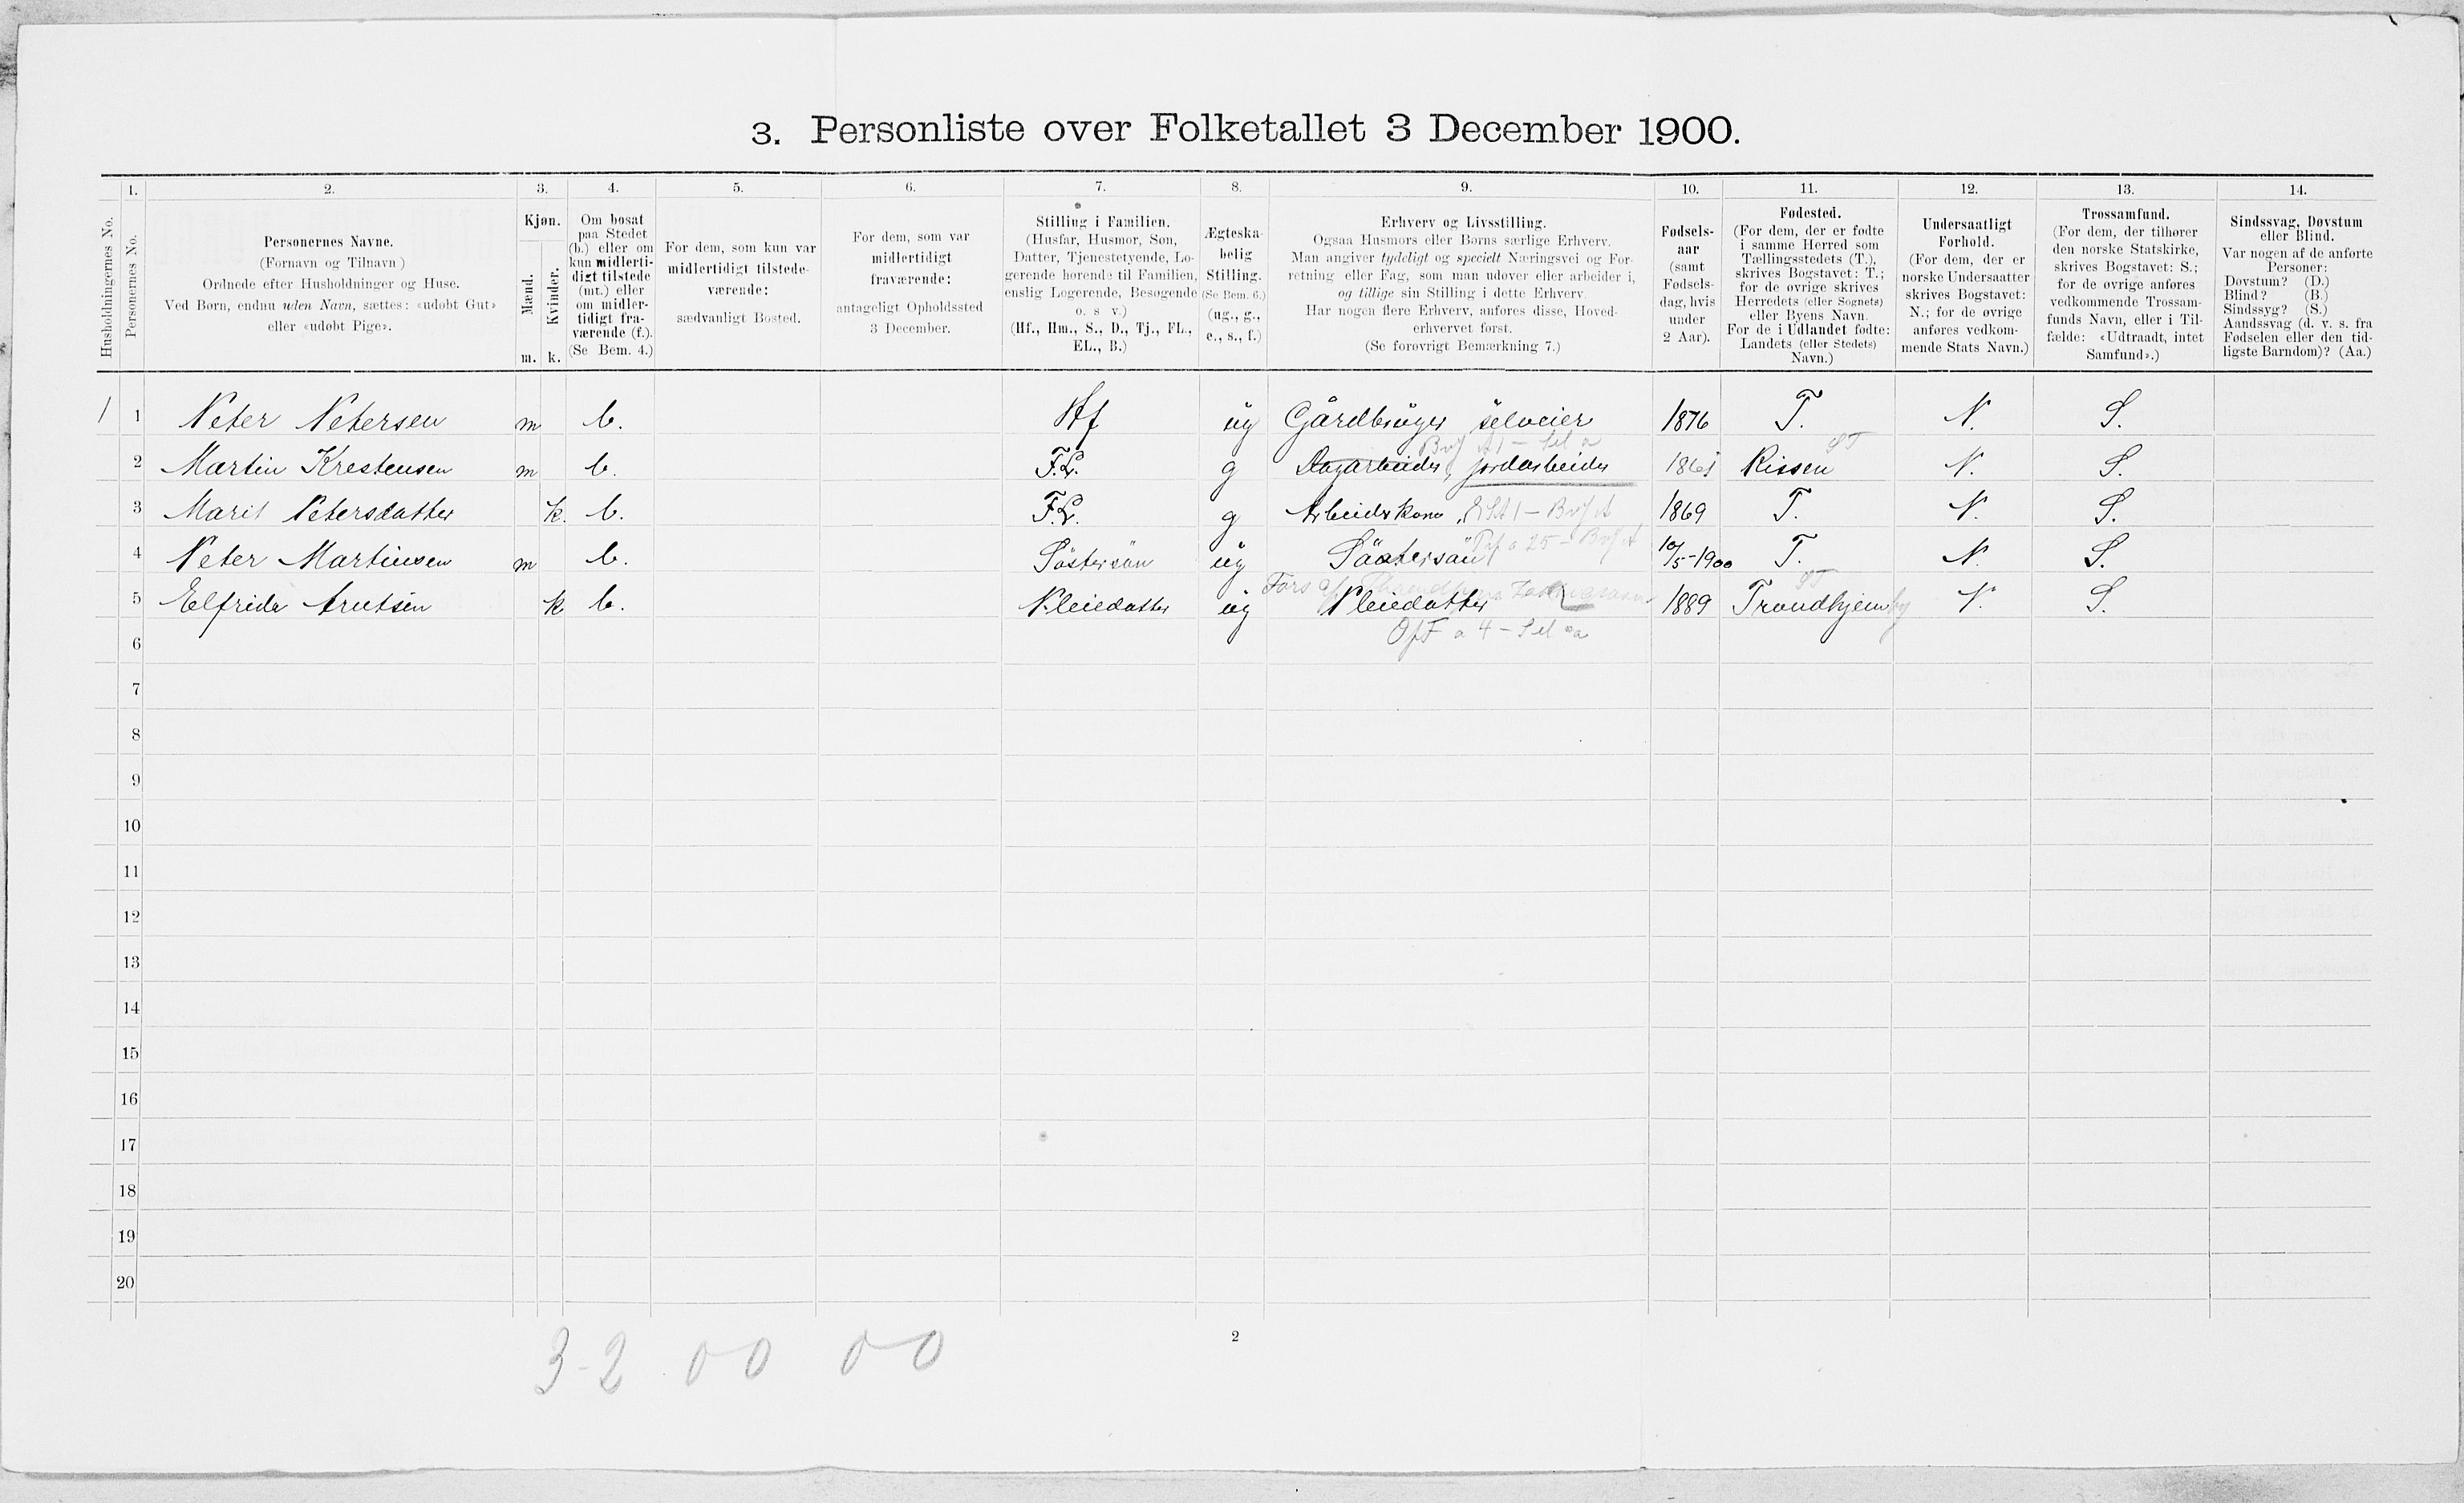 3. Personliste over Folketallet 3 December 1900.
1. 2. 3. 4. 5. 6. 7. 8. 9. 10. 11. 12. 13. 14.
Husholdningernes No.
Personernes No.
Personernes Navne.
(Fornavn og Tilnavn)
Ordnede efter Husholdninger og Huse.
Ved Børn, endnu uden Navn, sættes: «udøbt Gut»
eller «udøbt Pige».
Kjøn.
Mænd.
Kvinder.
m. k.
Om bosat
paa Stedet
(b.) eller om
kun midlerti-
digt tilstede
(mt.) eller
om midler-
tidigt fra-
værende (f.).
(Se Bem. 4.)
For dem, som kun var
midlertidigt tilstede-
værende:
sædvanligt Bosted.
For dem, som var
midlertidigt
fraværende:
antageligt Opholdssted
3 December.
Stilling i Familien.
(Husfar, Husmor, Søn,
Datter, Tjenestetyende, Lo-
gerende hørende til Familien,
enslig Logerende, Besøgende
o. s v.)
(Hf., Hm., S., D., Tj., FL.,
EL., B.)
Ægteska-
belig
Stilling.
(Se Bem. 6.)
(ug., g.,
e., s., f.)
Erhverv og Livsstilling.
Ogsaa Husmors eller Børns særlige Erhverv.
Man angiver tydeligt og specielt Næringsvei og For-
retning eller Fag, som man udøver eller arbeider i,
og tillige sin Stilling i dette Erhverv.
Har nogen flere Erhverv, anføres disse, Hoved-
erhvervet først.
(Se forøvrigt Bemærkning 7.)
Fødsels-
aar
(samt
Fødsels-
dag, hvis
under
2 Aar).
Fødested.
(For dem, der er fødte
i samme Herred som
Tællingsstedets (T.),
skrives Bogstavet: T.;
for de øvrige skrives
Herredets (eller Sognets)
eller Byens Navn.
For de i Udlandet fødte:
Landets (eller Stedets)
Navn.)
Undersaatligt
Forhold.
(For dem, der er
norske Undersaatter
skrives Bogstavet:
N.; for de øvrige
anføres vedkom-
mende Stats Navn.)
Trossamfund.
(For dem, der tilhører
den norske Statskirke,
skrives Bogstavet: S.;
for de øvrige anføres
vedkommende Trossam-
funds Navn, eller i Til-
fælde: «Udtraadt, intet
Samfund».)
Sindssvag, Døvstum
eller Blind.
Var nogen af de anførte
Personer:
Døvstum? (D.)
Blind? (B.)
Sindssyg? (S.)
Aandssvag (d. v. s. fra
Fødselen eller den tid-
ligste Barndom)? (Aa.)
1 1 Peter Petersen m b. Hf ug Gårdbruger selveier 1876 T. N. S.
2 Martin Krestensen m b. F.L. g Dagarbeider, jordarbeider Rissen N. S.
3 Marit Petersdatter k. b. F.L. g Arbeiderkone 1869 T. N. S.
4 Peter Martinsen m b. Söstersön ug Söstersön 10/5-1900 T. N. S.
5 Elfrida k b. Pleiedatter ug Pleiedatter 1889 Trondhjem by N. S.
6
7
8
9
10
11
12
13
14
15
16
17
18
19
20
3-2 0 0 0 0
2